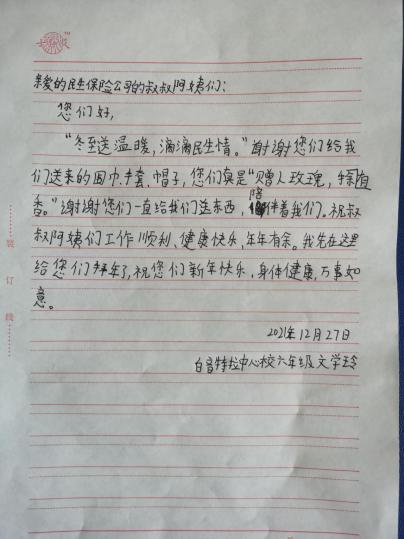 亲爱的民生保险公司的叔叔阿姨们：
您们好，
“冬至送温暖，滴滴民生情。”谢谢您们给我
们送来的围巾、手套、帽子，您们真是“赠人玫瑰，手留
香。”谢谢您们一直给我们送东西，陪伴着我们。祝叔
叔阿姨们工作顺利、健康快乐，年年有余。我先在这里
给您们拜年了，祝您们新年快乐，身体健康，万事如
意。
2021年12月27日
白音特拉中心校六年级 文学玲
装订线